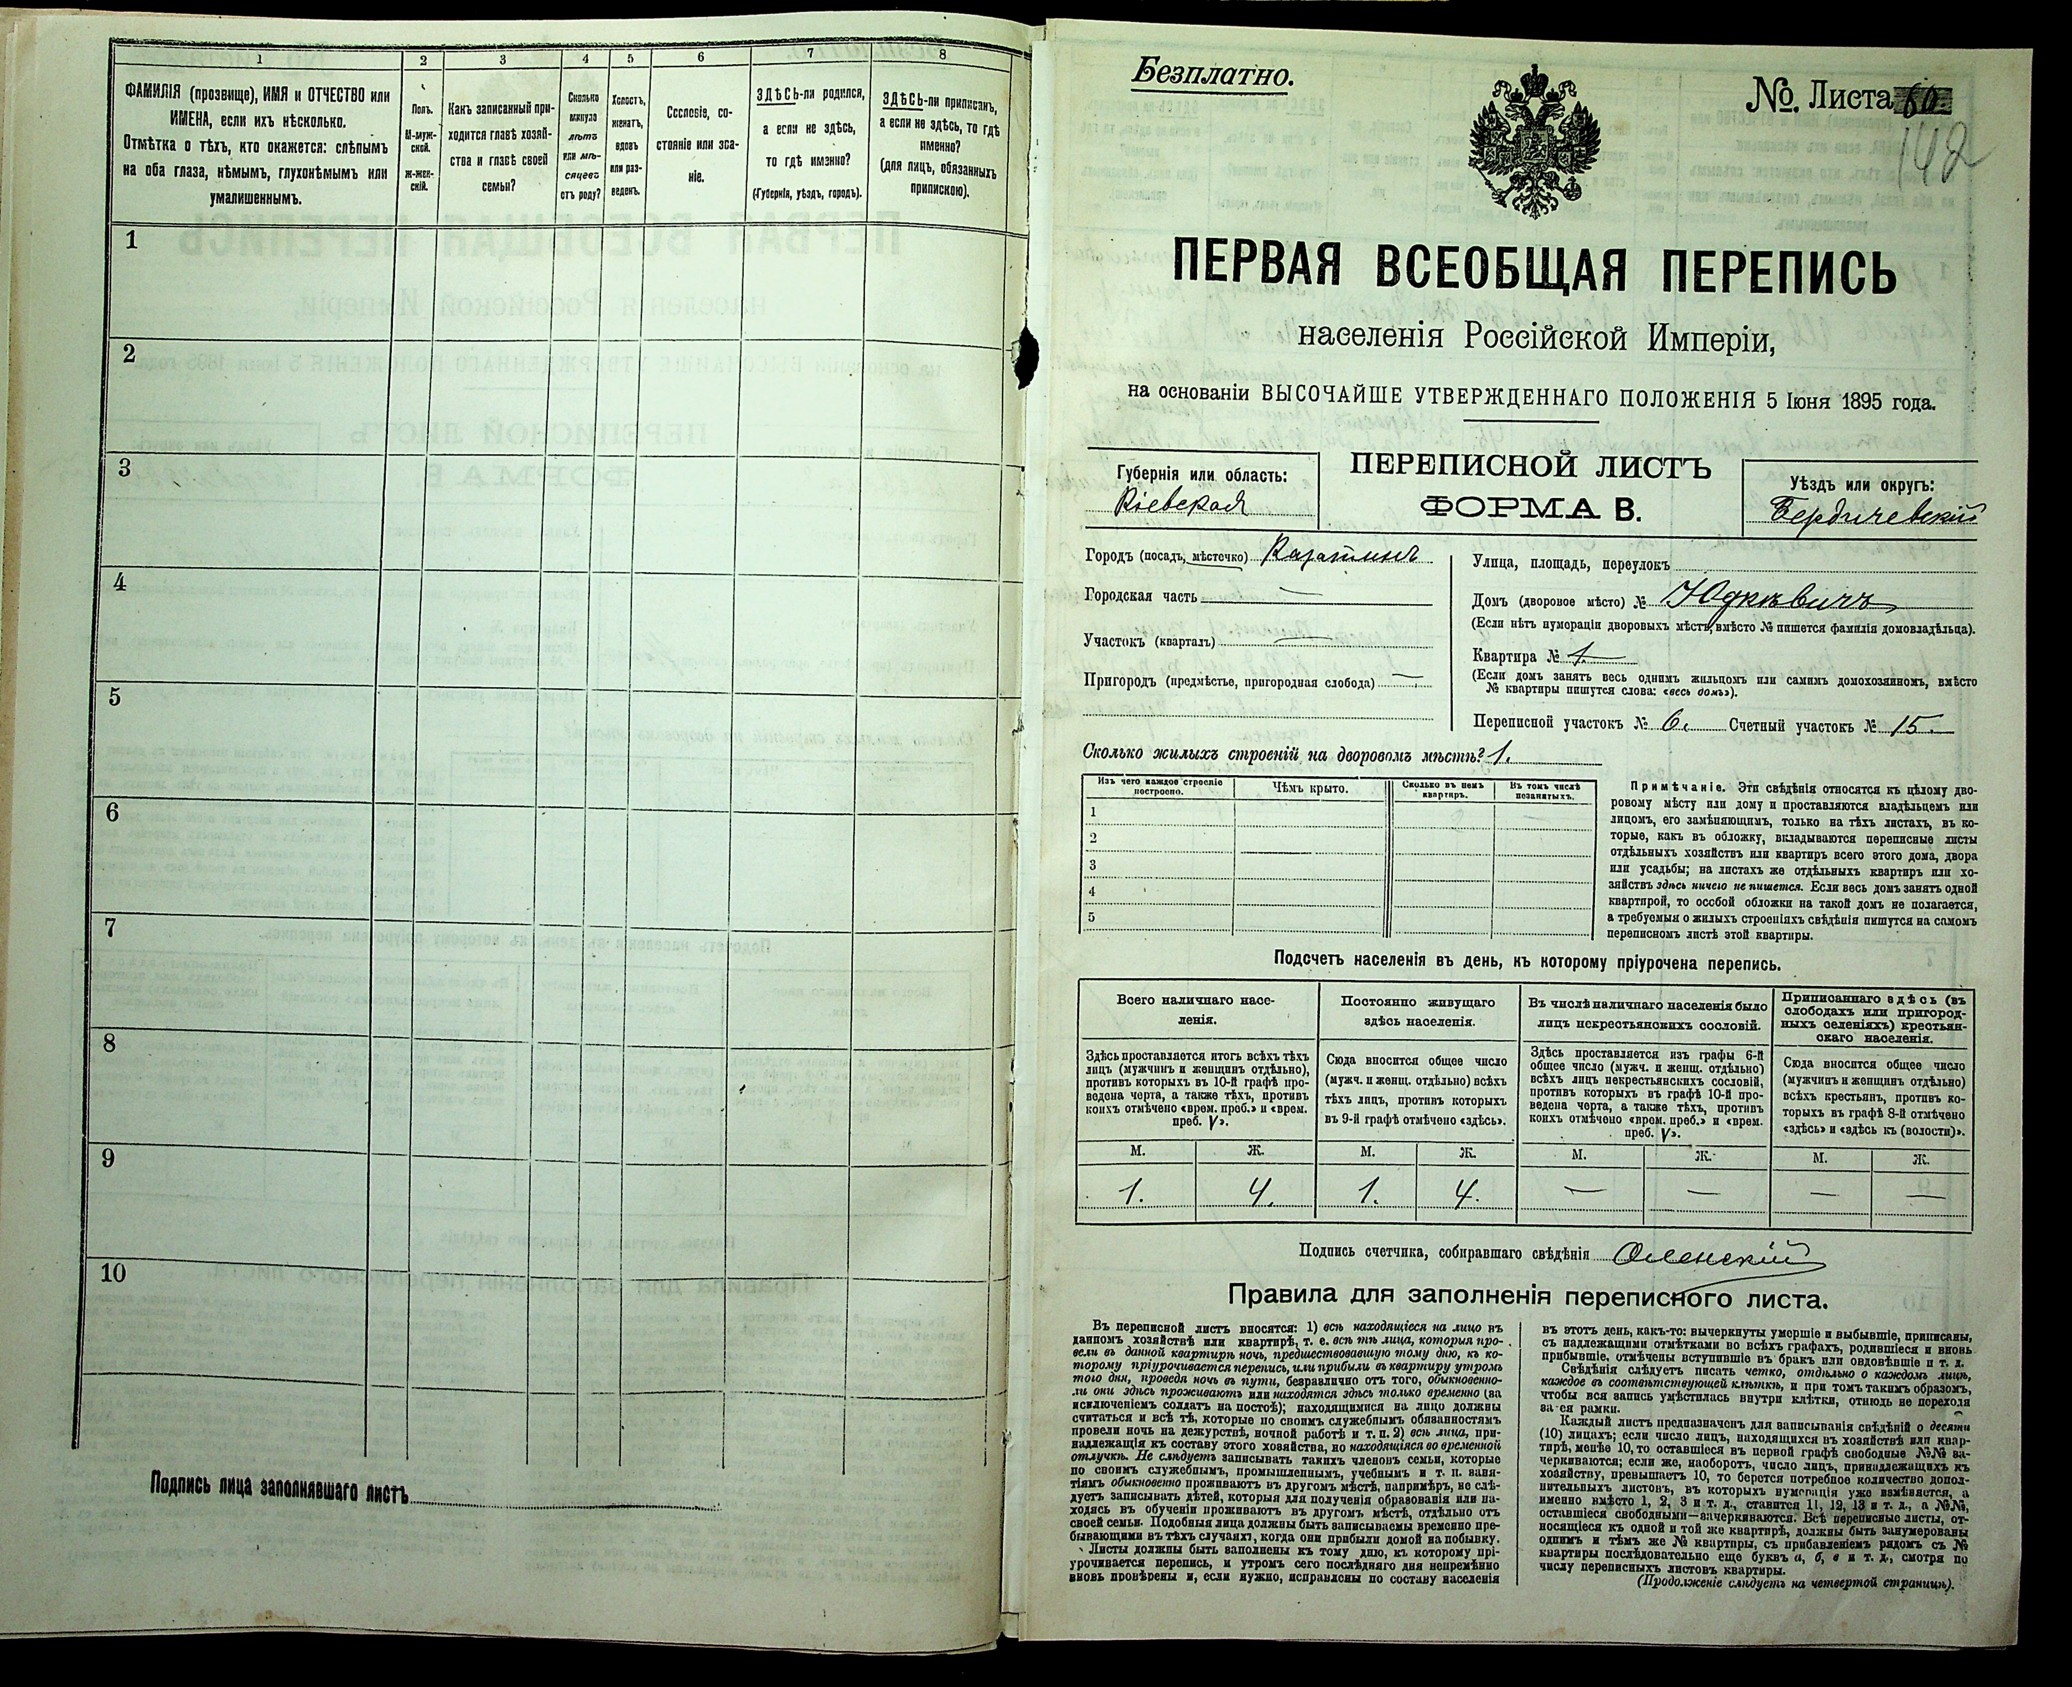 1
2
3
4
5
6
7
8
ФАМИЛІЯ (прозвище), ИМЯ и ОТЧЕСТВО или
ИМЕНА, если ихъ нѣсколько.
Отмѣтка о тѣхъ, кто окажется: слѣпымъ
на оба глаза, нѣмымъ, глухонѣмымъ или
умалишеннымъ.
Полъ.
М-муж-
ской.
ж-жен-
скій.
Какъ записанный при-
ходится главѣ хозяй-
ства и главѣ своей
семьи?
Сколько
минуло
лѣтъ
или мѣ-
сяцевъ
отъ роду?
Холостъ,
женатъ,
вдовъ
или раз-
веденъ.
Сословіе, со-
стояніе или зва-
ніе.
ЗДѢСЬ-ли родился,
а если не здѣсь,
то гдѣ именно?
(Губернія, уѣздъ, городъ).
ЗДѢСЬ-ли приписанъ,
а если не здѣсь, то гдѣ
именно?
(для лицъ, обязанныхъ
припискою).
1
2
3
4
5
6
7
8
9
10
Подпись лица заполнявшаго листъ
Безплатно.
№ Листа 60
142
ПЕРВАЯ ВСЕОБЩАЯ ПЕРЕПИСЬ
населенія Россійской Имперіи,
на основаніи ВЫСОЧАЙШЕ УТВЕРЖДЕННАГО ПОЛОЖЕНІЯ 5 Іюня 1895 года.
Губернія или область:
Кіевская
ПЕРЕПИСНОЙ ЛИСТЪ
ФОРМА В.
Уѣздъ или округъ:
Бердичевскій
Городъ (посадъ, мѣстечко) Казатинъ
Городская часть —
Участокъ (кварталъ) —
Пригородъ (предмѣстье, пригородная слобода) —
Улица, площадь, переулокъ
Домъ (дворовое мѣсто) № Юдкевичъ
(Если нѣтъ нумораціи дворовыхъ мѣстъ, вмѣсто № пишется фамилія домовладѣльца).
Квартира № 1
(Если домъ занятъ весь однимъ жильцомъ или самимъ домохозяиномъ, вмѣсто
№ квартиры пишутся слова: «весь домъ»).
Переписной участокъ № 6. Счетный участокъ № 15.
Сколько жилыхъ строеній на дворовомъ мѣстѣ? 1.
Изъ чего каждое строеніе
построено.
Чѣмъ крыто.
Сколько въ немъ
квартиръ.
Въ томъ числѣ
незанятыхъ.
1
2
3
4
5
Примѣчаніе. Эти свѣдѣнія относятся къ цѣлому дво-
ровому мѣсту или дому и проставляются владѣльцемъ или
лицомъ, его замѣняющимъ, только на тѣхъ листахъ, въ ко-
торые, какъ въ обложку, вкладываются переписные листы
отдѣльныхъ хозяйствъ или квартиръ всего этого дома, двора
или усадьбы; на листахъ же отдѣльныхъ квартиръ или хо-
зяйствъ здѣсь ничего не пишется. Если весь домъ занятъ одной
квартирой, то особой обложки на такой домъ не полагается,
а требуемыя о жилыхъ строеніяхъ свѣдѣнія пишутся на самомъ
переписномъ листѣ этой квартиры.
Подсчетъ населенія въ день, къ которому пріурочена перепись.
Всего наличнаго насе-
ленія.
Здѣсь проставляется итогъ всѣхъ тѣхъ
лицъ (мужчинъ и женщинъ отдѣльно),
противъ которыхъ въ 10-й графѣ про-
ведена черта, а также тѣхъ, противъ
коихъ отмѣчено «врем. преб.» и «врем.
преб. V».
Постоянно живущаго
здѣсь населенія.
Сюда вносится общее число
(мужч. и женщ. отдѣльно) всѣхъ
тѣхъ лицъ, противъ которыхъ
въ 9-й графѣ отмѣчено «здѣсь».
Въ числѣ наличнаго населенія было
лицъ некрестьянскихъ сословій.
Здѣсь проставляется изъ графы 6-й
общее число (мужч. и женщ. отдѣльно)
всѣхъ лицъ некрестьянскихъ сословій,
противъ которыхъ въ графѣ 10-й про-
ведена черта, а также тѣхъ, противъ
коихъ отмѣчено «врем. преб.» и «врем.
преб. V».
Приписаннаго здѣсь (въ
слободахъ или пригород-
ныхъ селеніяхъ) крестьян-
скаго населенія.
Сюда вносится общее число
(мужчинъ и женщинъ отдѣльно)
всѣхъ крестьянъ, противъ ко-
торыхъ въ графѣ 8-й отмѣчено
«здѣсь» и «здѣсь къ (волости)».
М. Ж. М. Ж. М. Ж. М. Ж.
1. 4. 1. 4. — — — —
Подпись счетчика, собиравшаго свѣдѣнія Оленскій
Правила для заполненія переписного листа.
Въ переписной листъ вносятся: 1) всѣ находящіеся на лицо въ
данномъ хозяйствѣ или квартирѣ, т. е. всѣ тѣ лица, которыя про-
вели въ данной квартирѣ ночь, предшествовавшую тому дню, къ ко-
торому пріурочивается перепись, или прибыли въ квартиру утромъ
того дня, проведя ночь въ пути, безразлично отъ того, обыкновенно-
ли они здѣсь проживаютъ или находятся здѣсь только временно (за
исключеніемъ солдатъ на постоѣ); находящимися на лицо должны
считаться и всѣ тѣ, которые по своимъ служебнымъ обязанностямъ
провели ночь на дежурствѣ, ночной работѣ и т. п. 2) всѣ лица, при-
надлежащія къ составу этого хозяйства, но находящіяся во временной
отлучкѣ. Не слѣдуетъ записывать такихъ членовъ семьи, которые
по своимъ служебнымъ, промышленнымъ, учебнымъ и т. п. заня-
тіямъ обыкновенно проживаютъ въ другомъ мѣстѣ, напримѣръ, не слѣ-
дуетъ записывать дѣтей, которыя для полученія образованія или на-
ходясь въ обученіи проживаютъ въ другомъ мѣстѣ, отдѣльно отъ
своей семьи. Подобныя лица должны быть записываемы временно пре-
бывающими въ тѣхъ случаяхъ, когда они прибыли домой на побывку.
Листы должны быть заполнены къ тому дню, къ которому прі-
урочивается перепись, и утромъ сего послѣдняго дня непремѣнно
вновь провѣрены и, если нужно, исправлены по составу населенія
въ этотъ день, какъ-то: вычеркнуты умершіе и выбывшіе, приписаны,
съ надлежащими отмѣтками во всѣхъ графахъ, родившіеся и вновь
прибывшіе, отмѣчены вступившіе въ бракъ или овдовѣвшіе и т. д.
Свѣдѣнія слѣдуетъ писать четко, отдѣльно о каждомъ лицѣ,
каждое въ соотвѣтствующей клѣткѣ, и при томъ такимъ образомъ,
чтобы вся запись умѣстилась внутри клѣтки, отнюдь не переходя
за ея рамки.
Каждый листъ предназначенъ для записыванія свѣдѣній о десяти
(10) лицахъ; если число лицъ, находящихся въ хозяйствѣ или квар-
тирѣ, менѣе 10, то оставшіеся въ первой графѣ свободные №№ за-
черкиваются; если же, наоборотъ, число лицъ, принадлежащихъ къ
хозяйству, превышаетъ 10, то берется потребное количество допол-
нительныхъ листовъ, въ которыхъ нумерація уже измѣняется, а
именно вмѣсто 1, 2, 3 и т. д., ставится 11, 12, 13 и т. д., а №№,
оставшіеся свободными—зачеркиваются. Всѣ переписные листы, от-
носящіеся къ одной и той же квартирѣ, должны быть занумерованы
однимъ и тѣмъ же № квартиры, съ прибавленіемъ рядомъ съ №
квартиры послѣдовательно еще буквъ а, б, в и т. д., смотря по
числу переписныхъ листовъ квартиры.
(Продолженіе слѣдуетъ на четвертой страницѣ).